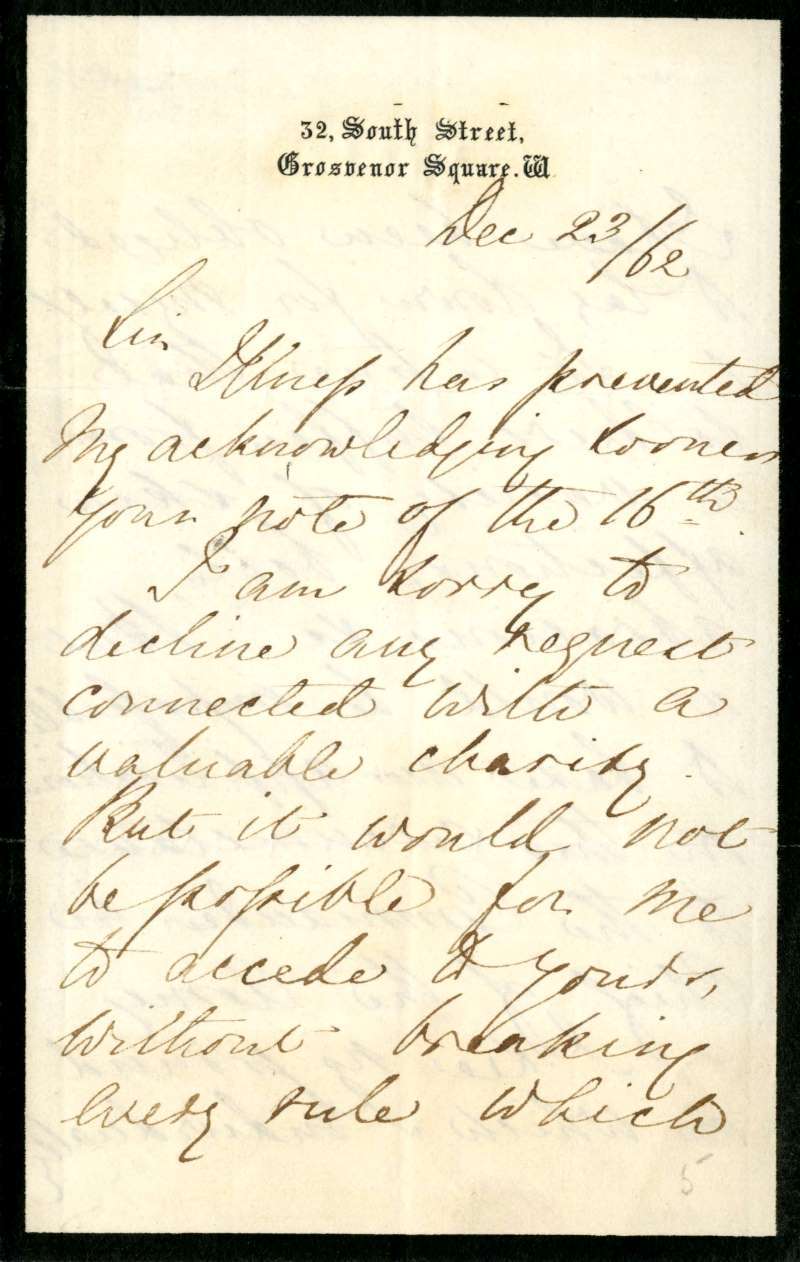 32, South Street,
Grosvenor Square. W
Dec 23/62
Sir
Illness has prevented
my acknowledging sooner
your note of the 16th.
I am sorry to
decline any request
connected with a
valuable charity.
But it would not
be possible for me
to accede to yours,
without breaking
every rule which
5